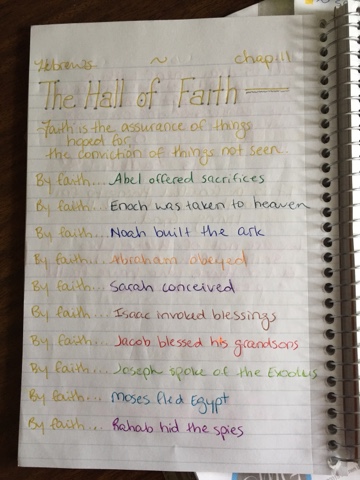 Hebrews ~ chap.11
The Hall of Faith
Faith is the assurance of things
hoped for,
the conviction of things not seen.
By faith... Abel offered sacrifices
By faith... Enoch was taken to heaven
By faith... Noah built the ark
By faith... Abraham obeyed
By faith... Sarah conceived
By faith... Isaac invoked blessings
By faith... Jacob blessed his grandsons
By faith... Joseph spoke of the Exodus
By faith... Moses fled Egypt
By faith... Rahab hid the spies